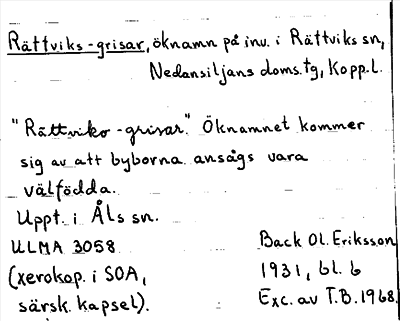 Rättviks-grisar, öknamn på inv. i Rättviks sn,
Nedansiljans doms.tg, Kopp.l.
"Rättviks-grisar". Öknamnet kommer
sig av att byborna ansågs vara
välfödda.
Uppt. i Åls sn.
ULMA 3058
(xerokop. i SOA,
särsk. kapsel).
Back Ol. Eriksson
1931, bl. 6
Exc. av T.B. 1968.